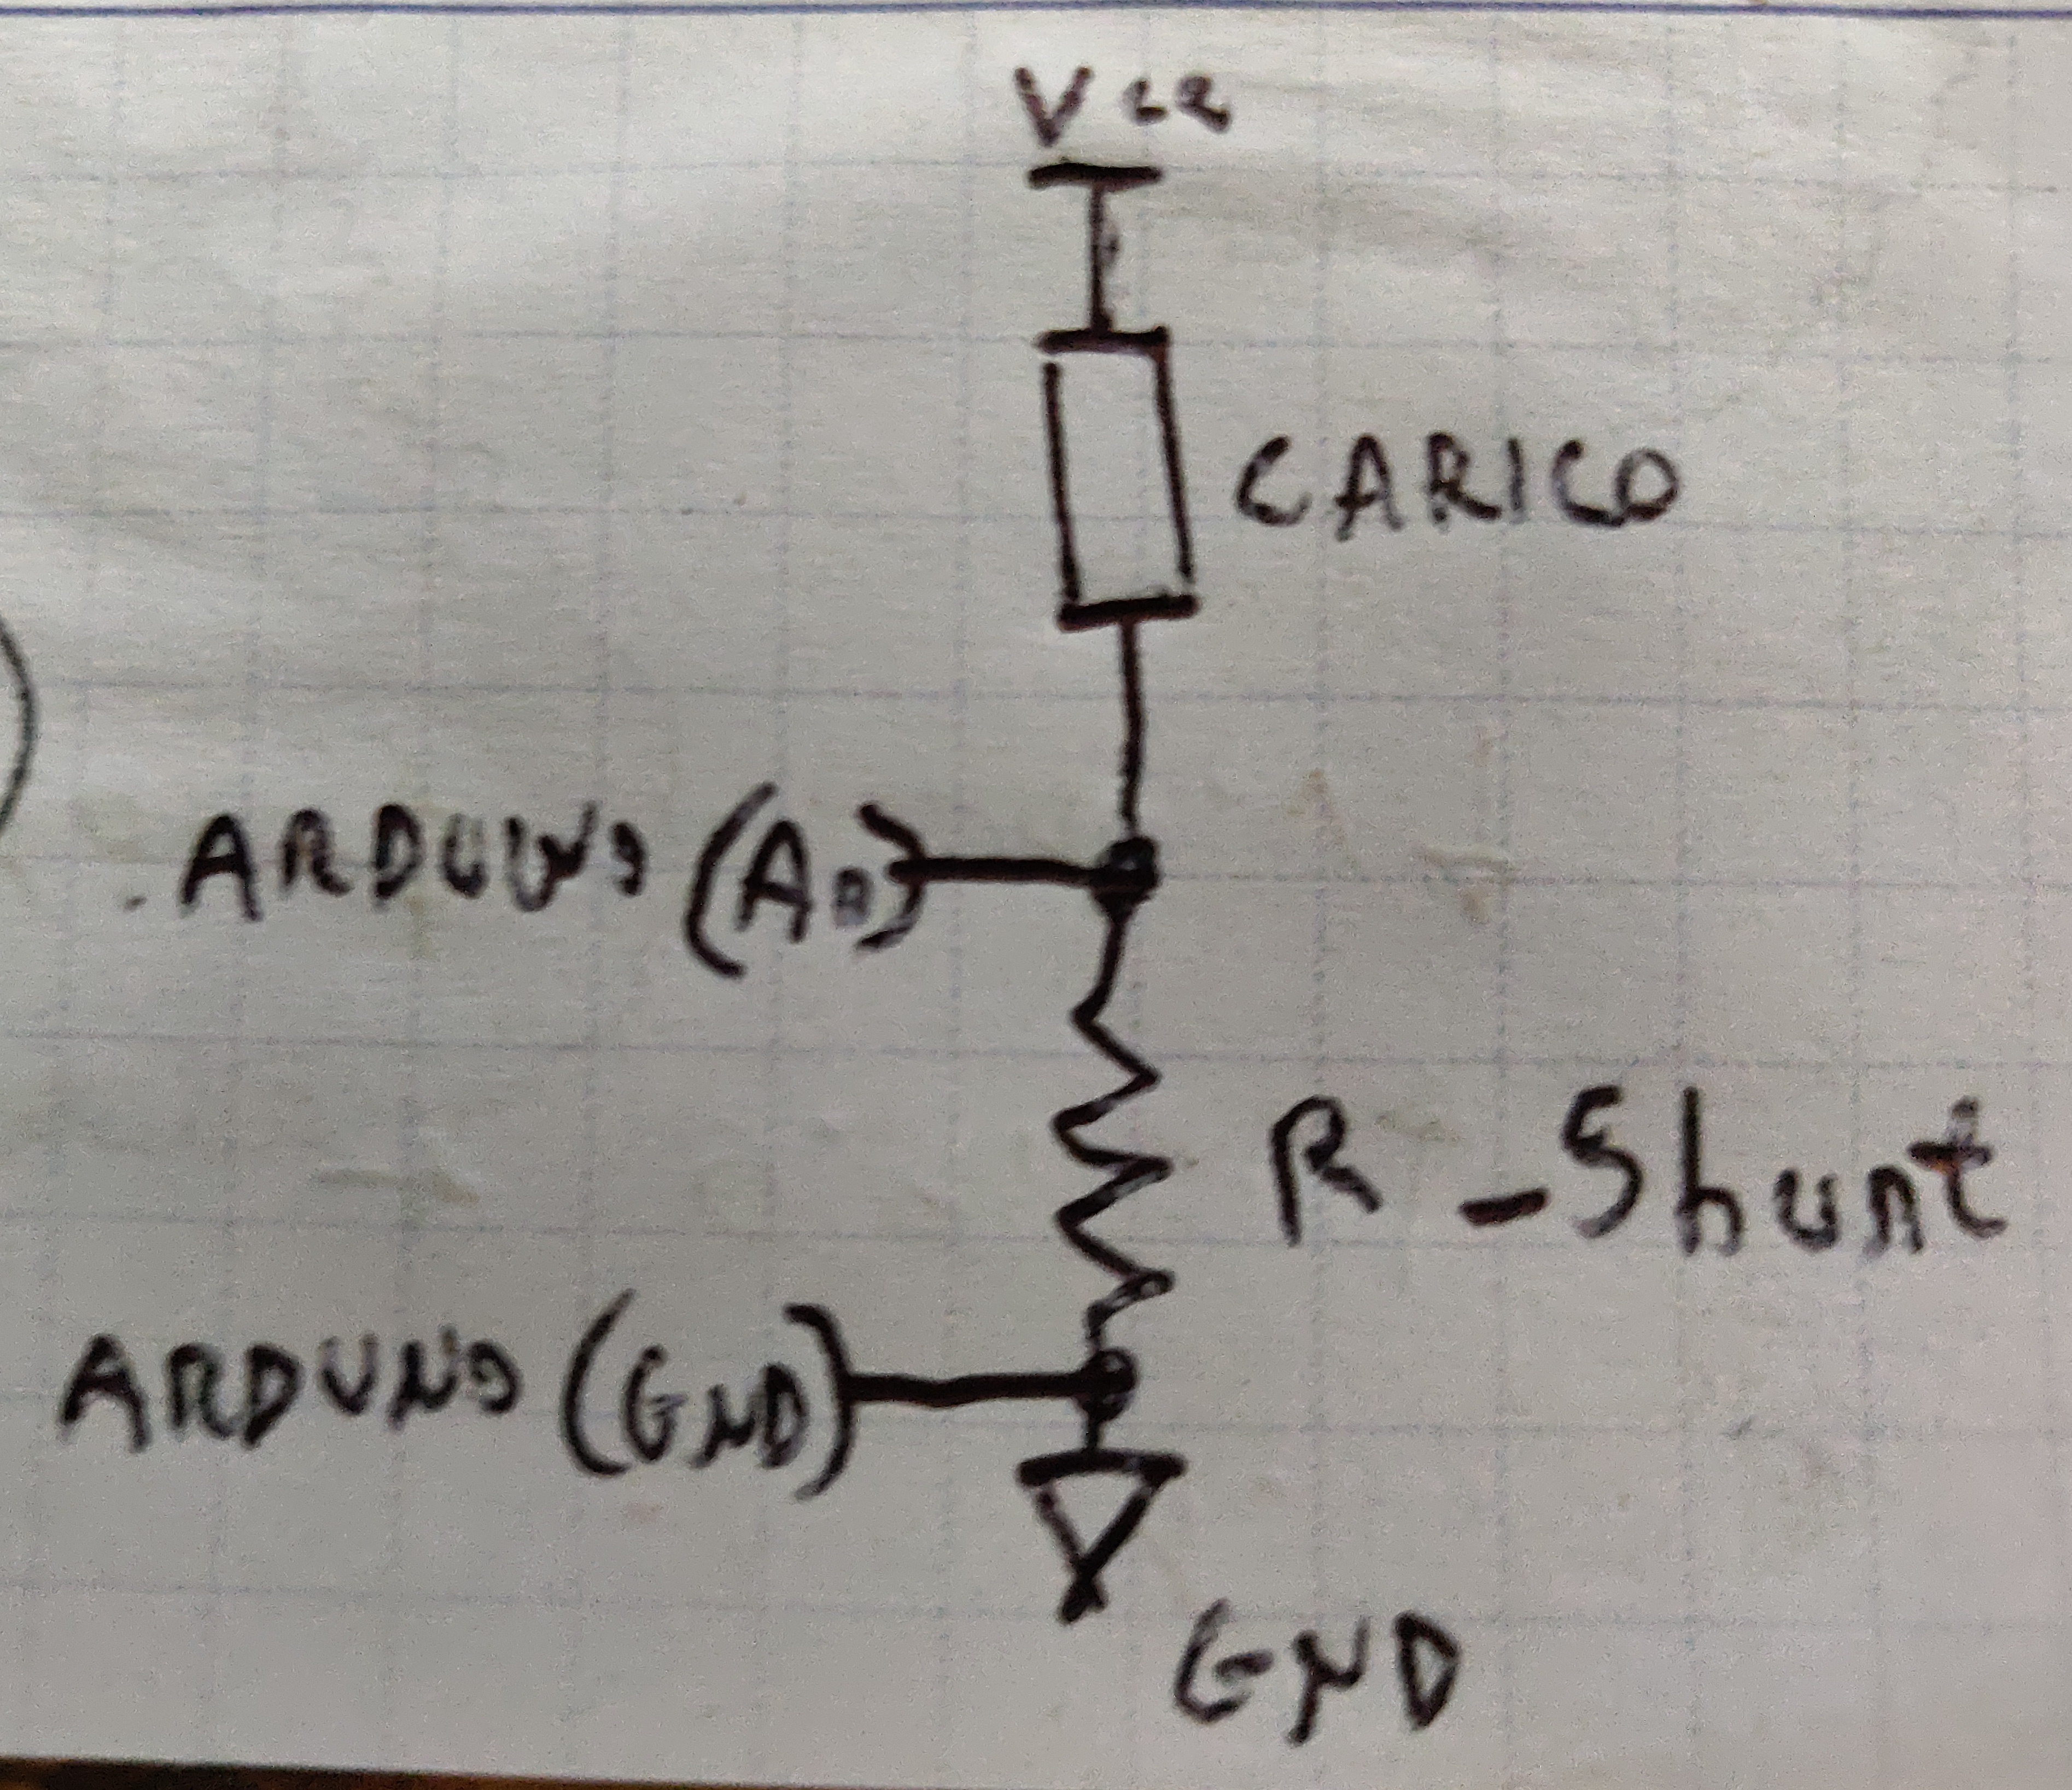 Vcc
CARICO
ARDUINO (A0)
R_Shunt
ARDUNO (GND)
GND